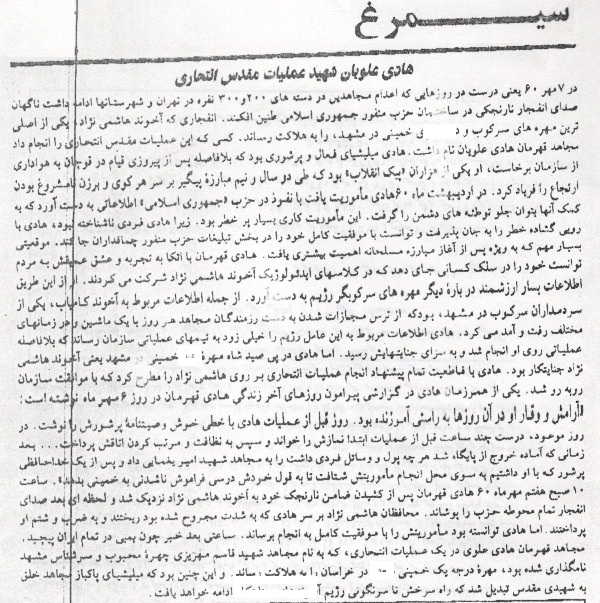 سیـمرغ
هادی علویان شهید عملیات مقدس انتحاری
در ۷ مهر ۶۰ یعنی درست در روزهایی که اعدام مجاهدین در دسته های ۲۰۰ و ۳۰۰ نفره در تهران و شهرستانها ادامه داشت ناگهان
صدای انفجار نارنجکی در ساختمان حزب منفور جمهوری اسلامی طنین افکند. انفجاری که آخوند هاشمی نژاد، یکی از اصلی
ترین مهره های سرکوب و خمینی در مشهد، را به هلاکت رساند. کسی که این عملیات مقدس انتحاری را انجام داد
مجاهد قهرمان هادی علویان نام داشت. هادی میلیشیای فعال و پرشوری بود که بلافاصله پس از پیروزی قیام در قوچان به هواداری
از سازمان برخاست، او یکی از هزاران «پیک انقلاب» بود که طی دو سال و نیم مبارزهٔ پیگیر بر سر هر کوی و برزن نامشروع بودن
ارتجاع را فریاد کرد. در اردیبهشت ماه ۶۰ هادی مأموریت یافت با نفوذ در حزب «جمهوری اسلامی» اطلاعاتی به دست آورد که به
کمک آنها بتوان جلو توطئه های دشمن را گرفت. این مأموریت کاری بسیار پر خطر بود. زیرا هادی فردی ناشناخته نبود، هادی با
رویی گشاده خطر را به جان پذیرفت و توانست با موفقیت کامل خود را در بخش تبلیغات حزب منفور چماقداران جا کند. موقعیتی
بسیار مهم که به ویژه پس از آغاز مبارزه مسلحانه اهمیت بیشتری یافت. هادی قهرمان با اتکا به تجربه و عشق عمیقش به مردم
توانست خود را در سلک کسانی جای دهد که در کلاسهای ایدئولوژیک آخوند هاشمی نژاد شرکت می کردند. او از این طریق
اطلاعات بسار ارزشمند در بارهٔ دیگر مهره های سرکوبگر رژیم به دست آورد. از جمله اطلاعات مربوط به آخوند کامیاب، یکی از
سردمداران سرکوب در مشهد، بودکه از ترس مجازات شدن به دست رزمندگان مجاهد هر روز با یک ماشین و در زمانهای
مختلف رفت و آمد می کرد. هادی اطلاعات مربوط به این عامل رژیم را خیلی زود به تیمهای عملیاتی سازمان رساند که بلافاصله
عملیاتی روی او انجام شد و به سزای جنایتهایش رسید. اما هادی در پی صید شاه مهرهٔ خمینی در مشهد یعنی آخوند هاشمی
نژاد جنایتکار بود. هادی با قاطعیت تمام پیشنهاد انجام عملیات انتحاری بر روی هاشمی نژاد را مطرح کرد که با موافقت سازمان
روبه رو شد. یکی از همرزمان هادی در گزارشی پیرامون روزهای آخر زندگی هادی قهرمان در روز ۶ مهر ماه نوشته است:
«آرامش و وقار او در آن روزها به راستی آموزنده بود. روز قبل از عملیات هادی با خطی خوش وصیتنامهٔ پرشورش را نوشت. در
روز موعود، درست چند ساعت قبل از عملیات ابتدا نمازش را خواند و سپس به نظافت و مرتب کردن اتاقش پرداخت... بعد
زمانی که آماده خروج از پایگاه شد هر چه پول و وسائل فردی داشت را به مجاهد شهید امیر یغمایی داد و پس از یک خداحافظی
پرشور که با او داشتیم به سوی محل انجام مأموریتش شتافت تا به قول خودش درسی فراموش ناشدنی به خمینی بدهد». ساعت
۱۰ صبح هفتم مهرماه ۶۰ هادی قهرمان پس از کشیدن ضامن نارنجک خود به آخوند هاشمی نژاد نزدیک شد و لحظه ای بعد صدای
انفجار تمام محوطه حزب را پوشاند. محافظان هاشمی نژاد بر سر هادی که به شدت مجروح شده بود ریختند و به ضرب و شتم او
پرداختند. اما هادی توانسته بود مأموریتش را با موفقیت کامل به انجام برساند. ساعتی بعد خبر چون بمبی در تمام ایران پیچید.
مجاهد قهرمان هادی علوی در یک عملیات انتحاری، که به نام مجاهد شهید قاسم مهریزی چهرهٔ محبوب و سرشناس مشهد
نامگذاری شده بود، مهرهٔ درجه یک خمینی در خراسان را به هلاکت رساند. و این چنین بود که میلیشیای پاکباز مجاهد خلق
به شهیدی مقدس تبدیل شد که راه سرخش تا سرنگونی رژیم ادامه خواهد یافت.